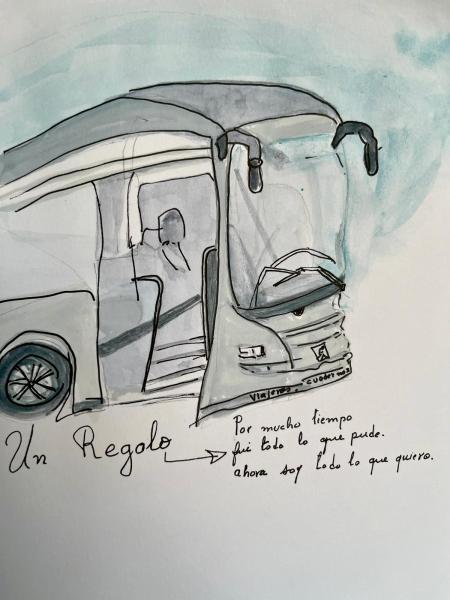 Viajeros. cuadernos
Un Regalo
Por mucho tiempo
fui todo lo que pude.
ahora soy todo lo que quiero.